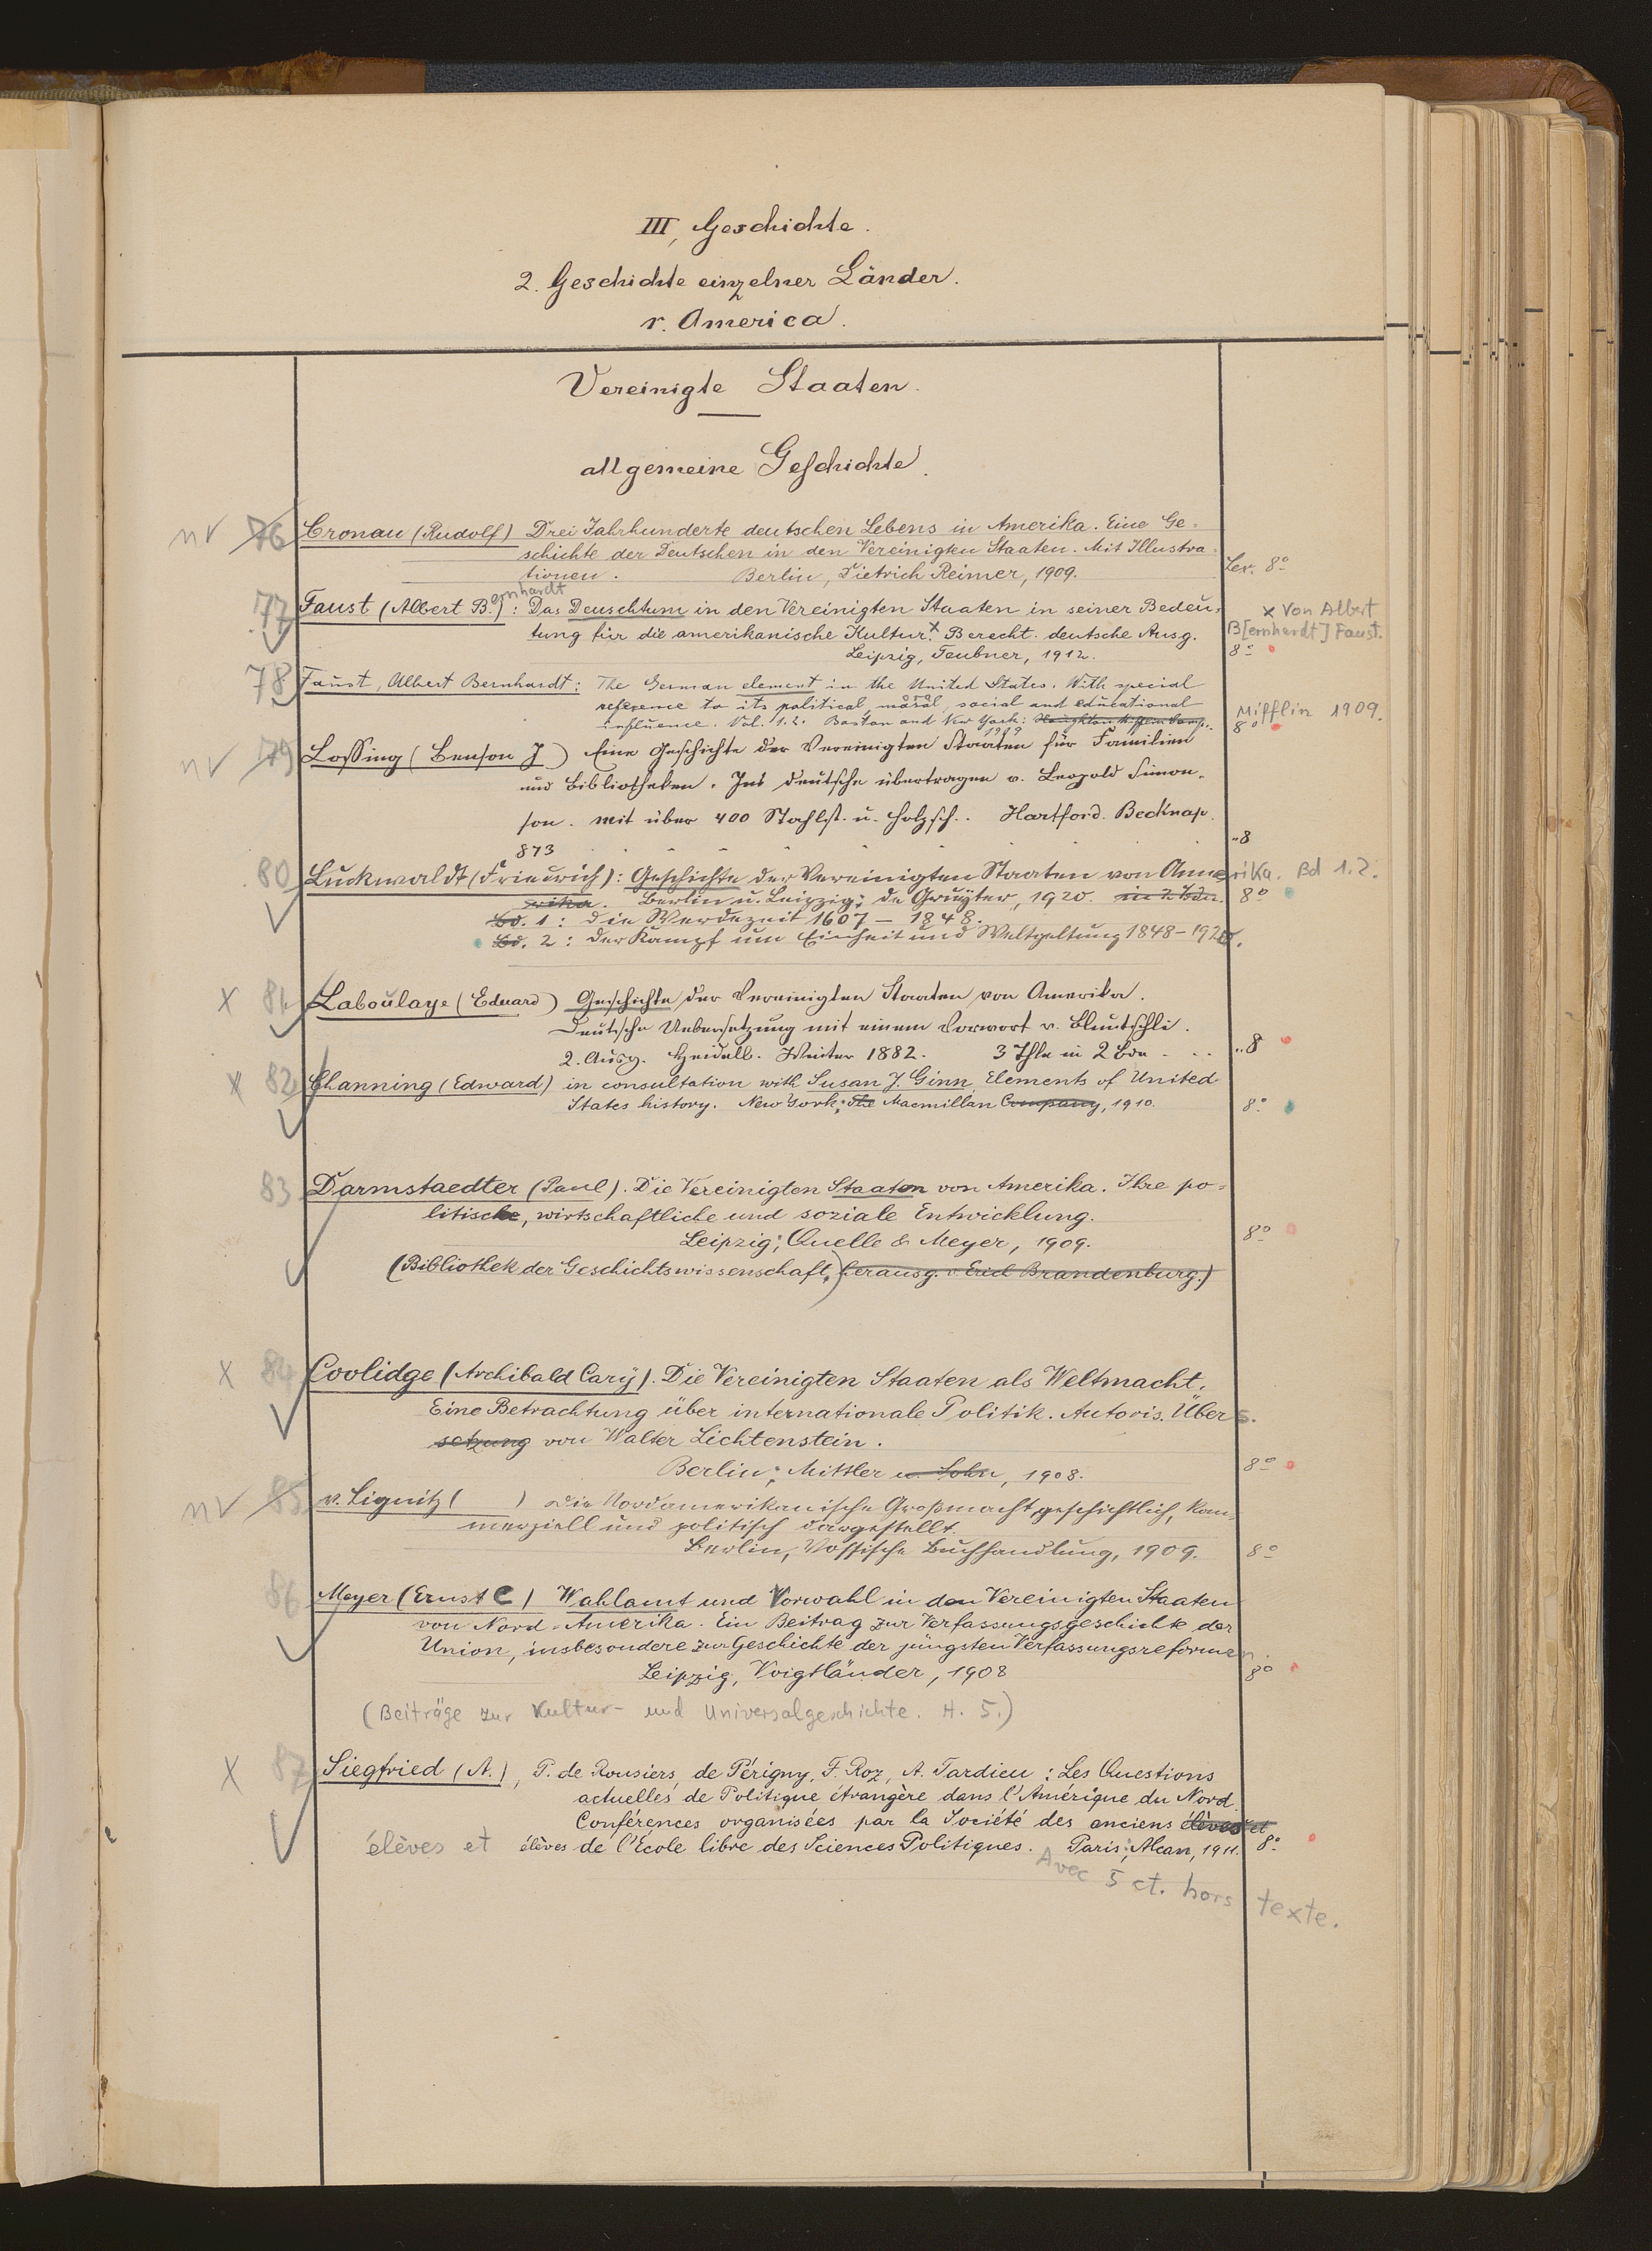 III, Geschichte.
2. Geschichte einzelner Länder.
r. America.
Vereinigte Staaten.
allgemeine Geschichte.
nv 76 Cronau (Rudolf) Drei Jahrhunderte deutschen Lebens in Amerika. Eine Ge=
schichte der Deutschen in den Vereinigten Staaten. Mit Illustra=
tionen. Berlin, Dietrich Reimer, 1909. Lex. 8°
77 Faust (Albert B.ernhardt): Das Deuschtum in den Vereinigten Staaten in seiner Bedeu= x Von Albert
tung für die amerikanische Kultur.x Berecht. deutsche Ausg. B[ernhardt] Faust.
Leipzig, Teubner, 1912. 8°
78 Faust, Albert Bernhardt: The German element in the United States. With special
reference to its political, moral, social and educational
influence. Vol. 1.2. Boston and New York: Houghton Mifflin Comp. Mifflin 1909.
1909 8°
nv 79 Lossing (Benson J) Eine Geschichte der Vereinigten Staaten für Familien
und Bibliotheken. Ins deutsche übertragen v. Leopold Simon-
son. mit über 400 Stahlst. u. Holzsch.. Hartford. Becknap.
873 „8
80 Luckwaldt (Friedrich): Geschichte der Vereinigten Staaten von Amerika. Bd 1.2.
erika. Berlin u. Leipzig: de Gruyter, 1920. in 2 Bdn. 8°
Bd. 1: die Werdezeit 1607 – 1848.
Bd. 2: der Kampf um Einheit und Weltgeltung 1848–1920.
x 81 Laboulaye (Eduard) Geschichte der Vereinigten Staaten von Amerika.
Deutsche Uebersetzung mit einem Vorwort v. Bluntschli.
2. Ausg. Heidelb. Winter 1882. 3 Thle in 2 Bdn „8
x 82 Channing (Edward) in consultation with Susan J. Ginn, Elements of United
States history. New York: The Macmillan Company, 1910. 8°
83 Darmstaedter (Paul). Die Vereinigten Staaten von Amerika. Ihre po=
litische, wirtschaftliche und soziale Entwicklung.
Leipzig: Quelle & Meyer, 1909. 8°
(Bibliothek der Geschichtswissenschaft,) herausg. v. Erich Brandenburg.)
x 84 Coolidge (Archibald Cary). Die Vereinigten Staaten als Weltmacht.
Eine Betrachtung über internationale Politik. Autoris. Übers.
setzung von Walter Lichtenstein.
Berlin: Mittler u. Sohn, 1908. 8°
nv 85 v. Lignitz ( ) Die Nordamerikanische Großmacht, geschichtlich, kom-
merziell und politisch dargestellt.
Berlin, Vossische Buchhandlung, 1909. 8°
86 Meyer (Ernst C) Wahlamt und Vorwahl in den Vereinigten Staaten
von Nord-Amerika. Ein Beitrag zur Verfassungsgeschichte der
Union, insbesondere zur Geschichte der jüngsten Verfassungsreformen.
Leipzig, Voigtländer, 1908 8°
(Beiträge zur Kultur- und Universalgeschichte. H. 5.)
x 87 Siegfried (A.), P. de Rousiers, de Périgny, F. Roz, A. Tardieu: Les Questions
actuelles de Politique étrangère dans l'Amérique du Nord.
Conférences organisées par la Société des anciens élèves et
élèves et élèves de l'Ecole libre des Sciences Politiques. Paris: Alcan, 1911. 8°
Avec 5 ct. hors texte.